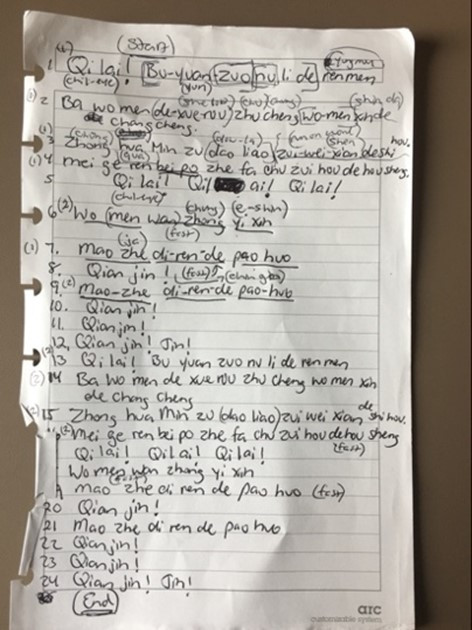 (Start)
1 Qi lai! Bu-yuan zuo nu li de ren men
(chil-eye) (yun)
2 Ba wo men (de-xue-rou) zhu cheng wo-men xin de
chang cheng.
3 Zhong hua Min zu (dao liao) zui-wei-xian de shi hou.
4 mei ge ren bei po zhe fa chu zui hou de hou sheng.
5 Qi lai! Qi lai! Qi lai!
6 (2) Wo (men wan) zhong yi xin
(fast)
(1) 7. mao zhe di-ren-de pao huo
8. Qian jin! (fast)
9. (2) mao-zhe di-ren-de pao-huo
10. Qian jin!
11. Qian jin!
12. Qian jin! Jin!
13 Qi lai! Bu yuan zuo nu li de ren men
14 Ba wo men de xue rou zhu cheng wo men xin
de Chang Cheng
15 Zhong hua Min zu (dao liao) zui wei xian de shi hou.
Mei ge ren bei po zhe fa chu zui hou de hou sheng
(fast)
Qi lai! Qi lai! Qi lai!
Wo men wan zhong yi xin
mao zhe di ren de pao huo (fast)
20 Qian jin!
21 Mao zhe di ren de pao huo
22 Qian jin!
23 Qian jin!
24 Qian jin! Jin!
(End)
arc
customizable system